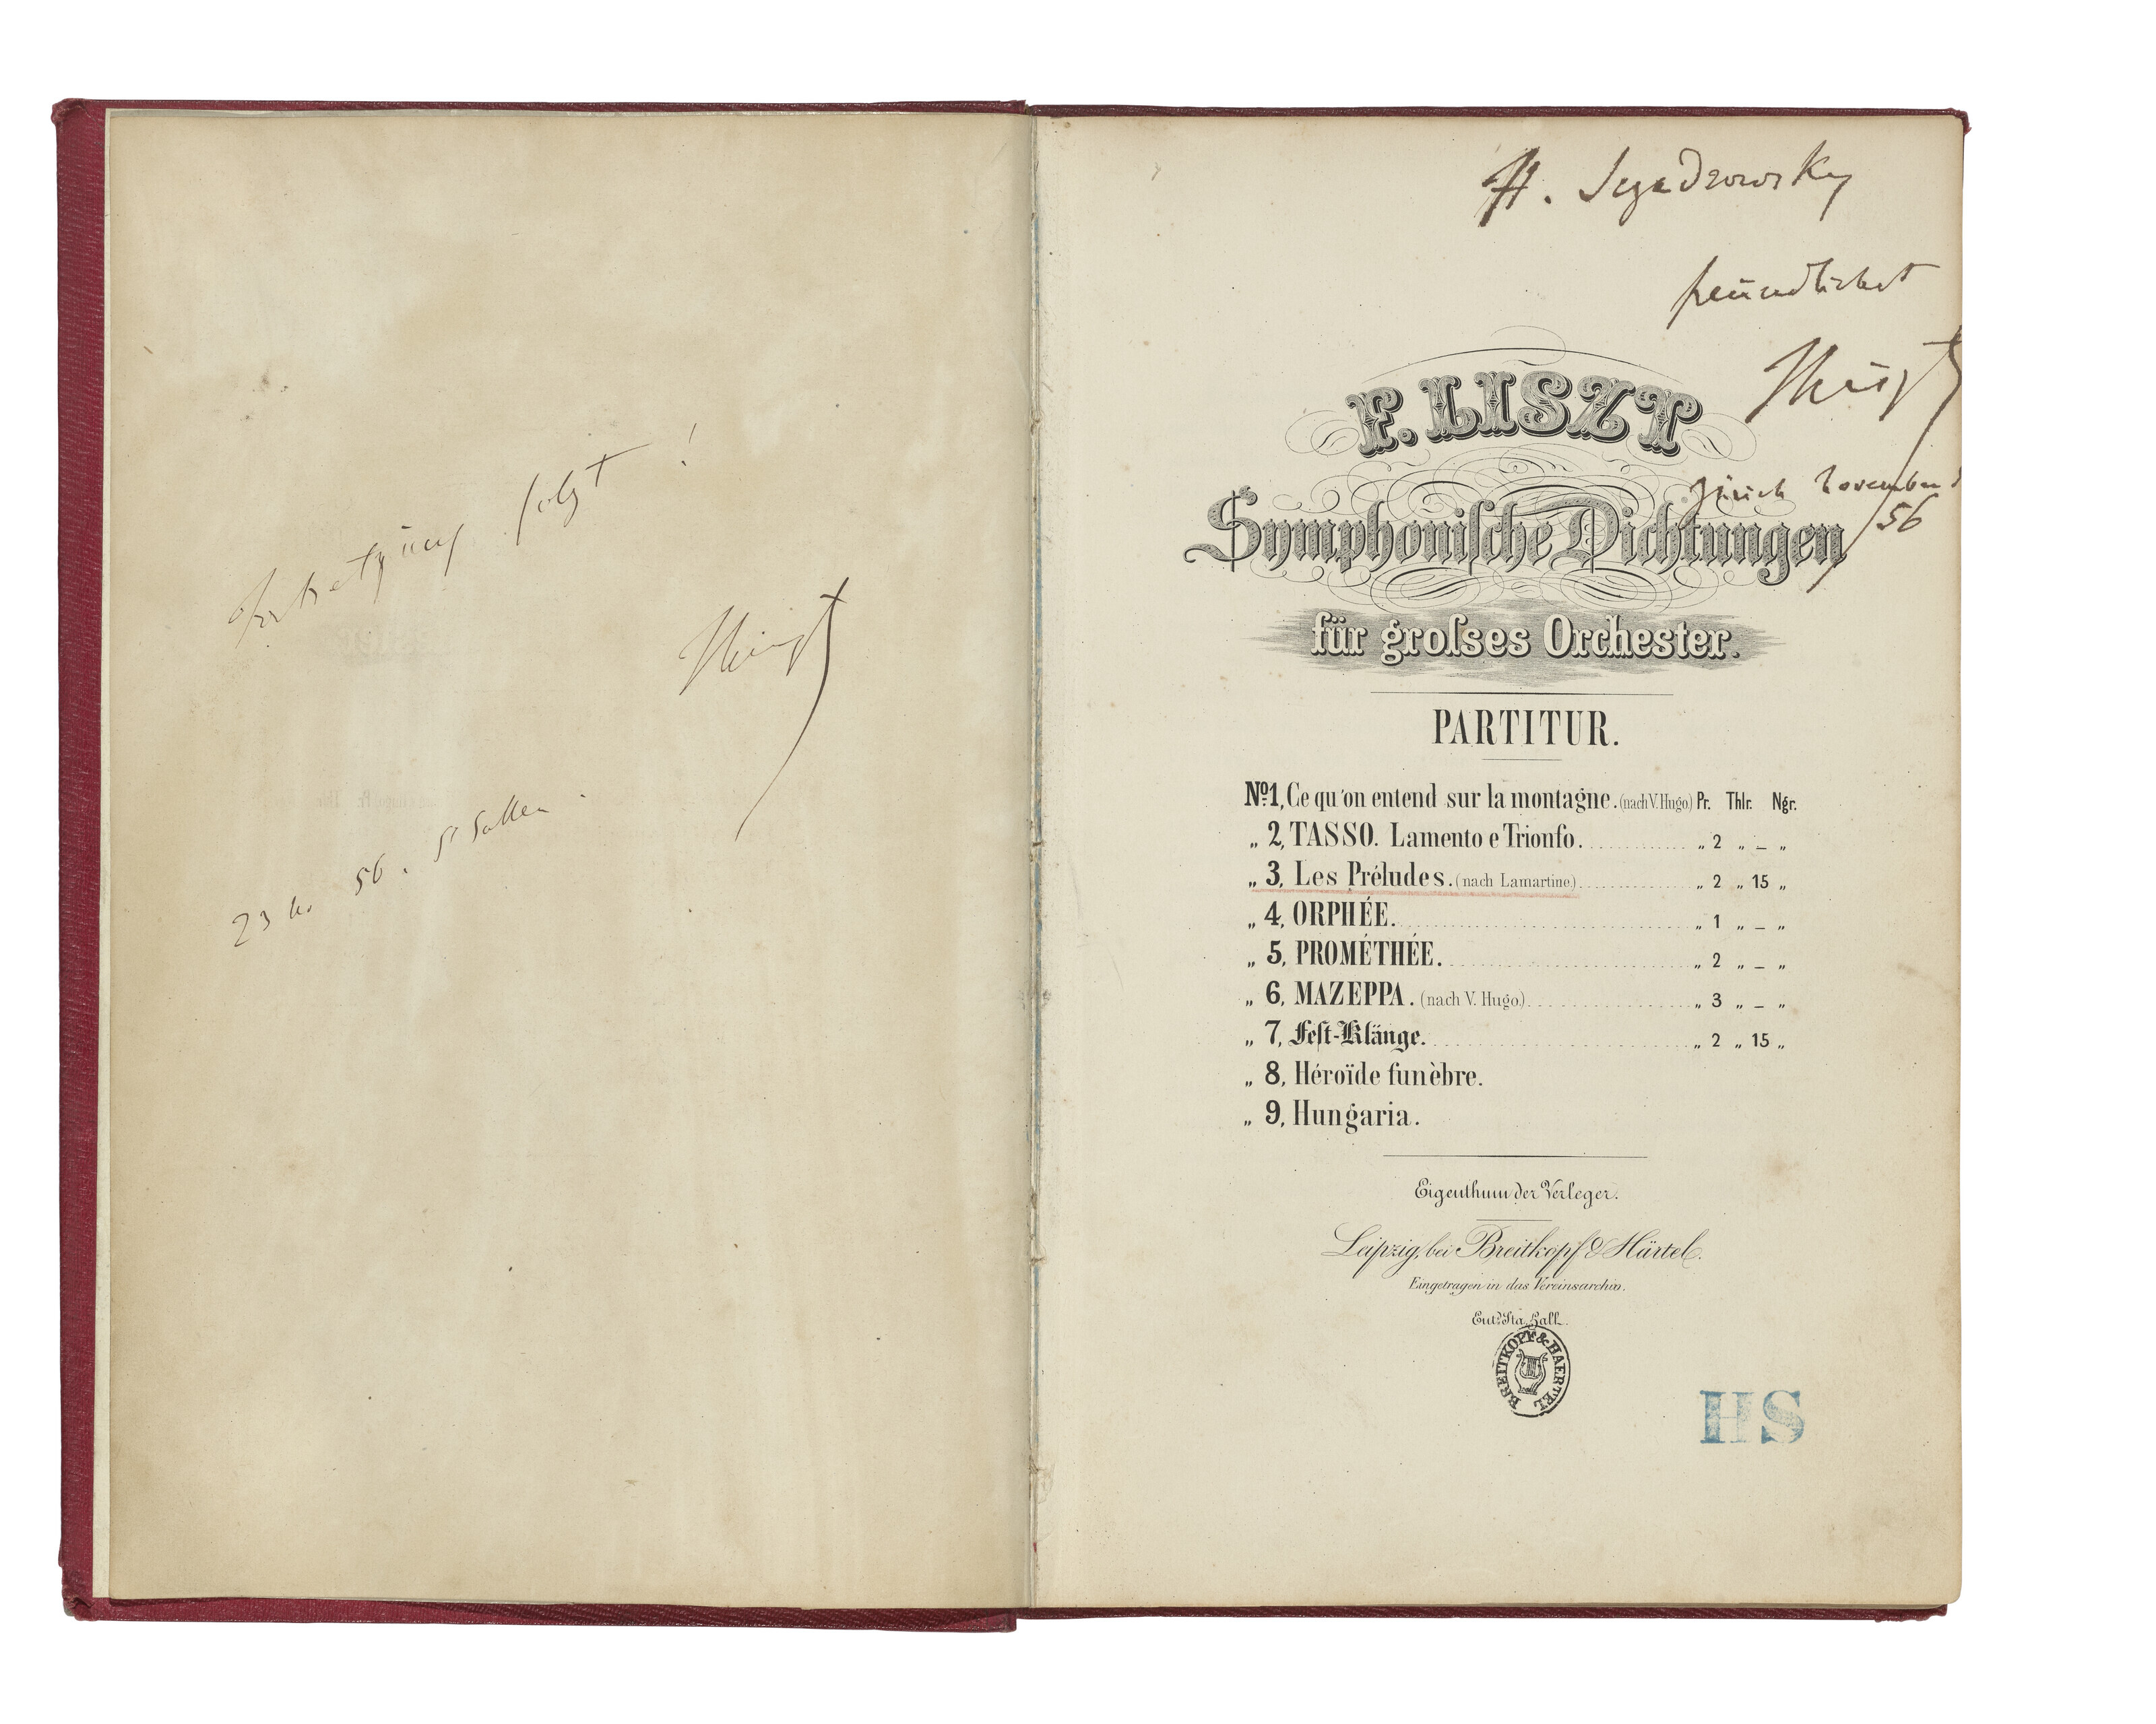 Fortsetzung folgt!
FLiszt
23 N. 56. St Gallen.
H. Sczadrowsky
freundlichst
FLiszt
Zürich November
56
F. LISZT
Symphoniſche Dichtungen
für groſses Orchester.
PARTITUR.
Nº1, Ce qu'on entend sur la montagne. (nach V. Hugo) Pr. Thlr. Ngr.
„ 2, TASSO. Lamento e Trionfo. „ 2 „ _ „
„ 3, Les Préludes. (nach Lamartine.) „ 2 „ 15 „
„ 4, ORPHÉE. „ 1 „ _ „
„ 5, PROMÉTHÉE. „ 2 „ _ „
„ 6, MAZEPPA. (nach V. Hugo.) „ 3 „ _ „
„ 7, Feſt-Klänge. „ 2 „ 15 „
„ 8, Héroïde funèbre.
„ 9, Hungaria.
Eigenthum der Verleger.
Leipzig, bei Breitkopf & Härtel.
Eingetragen in das Vereinsarchiv.
Entd Sta. Hall.
BREITKOPF & HAERTEL
HS